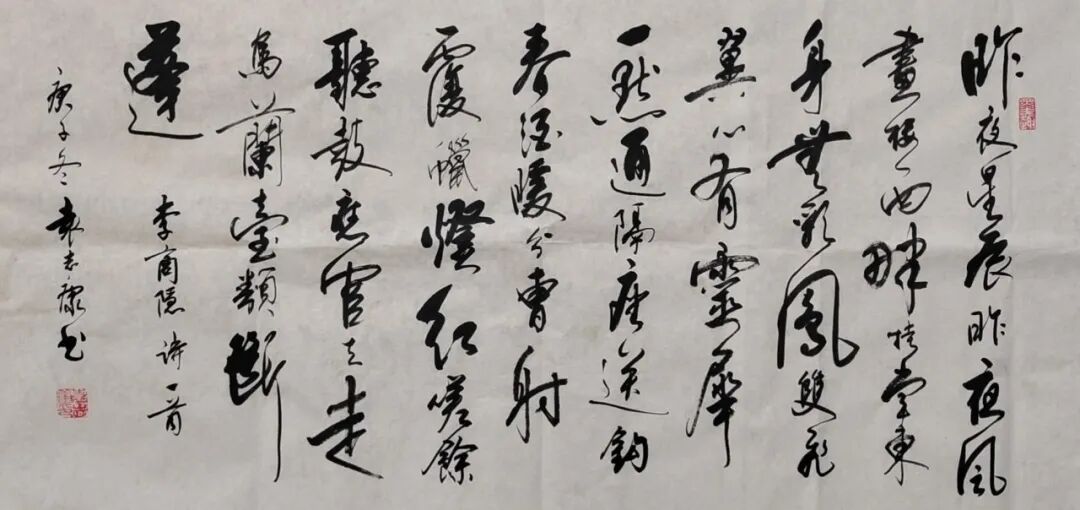 昨夜星辰昨夜風
畫樓西畔桂堂東
身無彩鳳雙飛
翼心有靈犀
一點通隔座送鈎
春酒暖分曹射
覆蠟燈紅嗟餘
聽鼓應官去走
馬蘭臺類斷
蓬
李商隱詩一首
庚子冬袁志康书